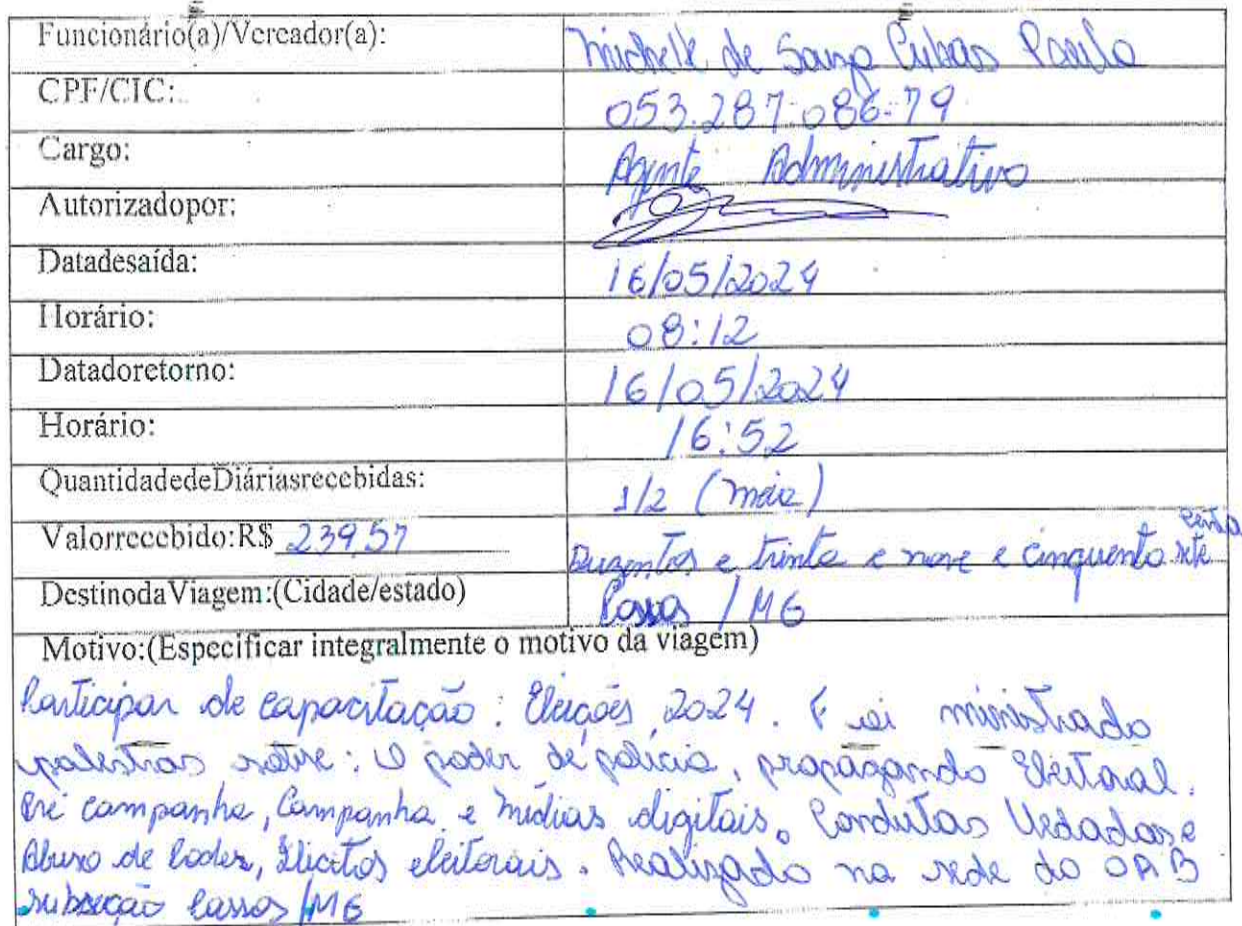 Funcionário(a)/Vereador(a): Michelle de Souza Cubas Paulo
CPF/CIC: 053.287.086-79
Cargo: Agente Administrativo
Autorizadopor:
Datadesaída: 16/05/2024
Horário: 08:12
Datadoretorno: 16/05/2024
Horário: 16:52
QuantidadedeDiáriasrecebidas: 1/2 (meia)
Valorrecebido:R$ 239,57 Duzentos e trinta e nove e cinquenta sete
DestinodaViagem:(Cidade/estado) Passos / MG
Motivo:(Especificar integralmente o motivo da viagem)
Participar de capacitação: Eleições 2024. Foi ministrado
palestras sobre: O poder de polícia, propaganda Eleitoral.
Pré campanha, Campanha e Mídias digitais. Condutas Vedadas e
Abuso de Poder, Ilícitos eleitorais. Realizado na sede da OAB
subseção Passos/MG